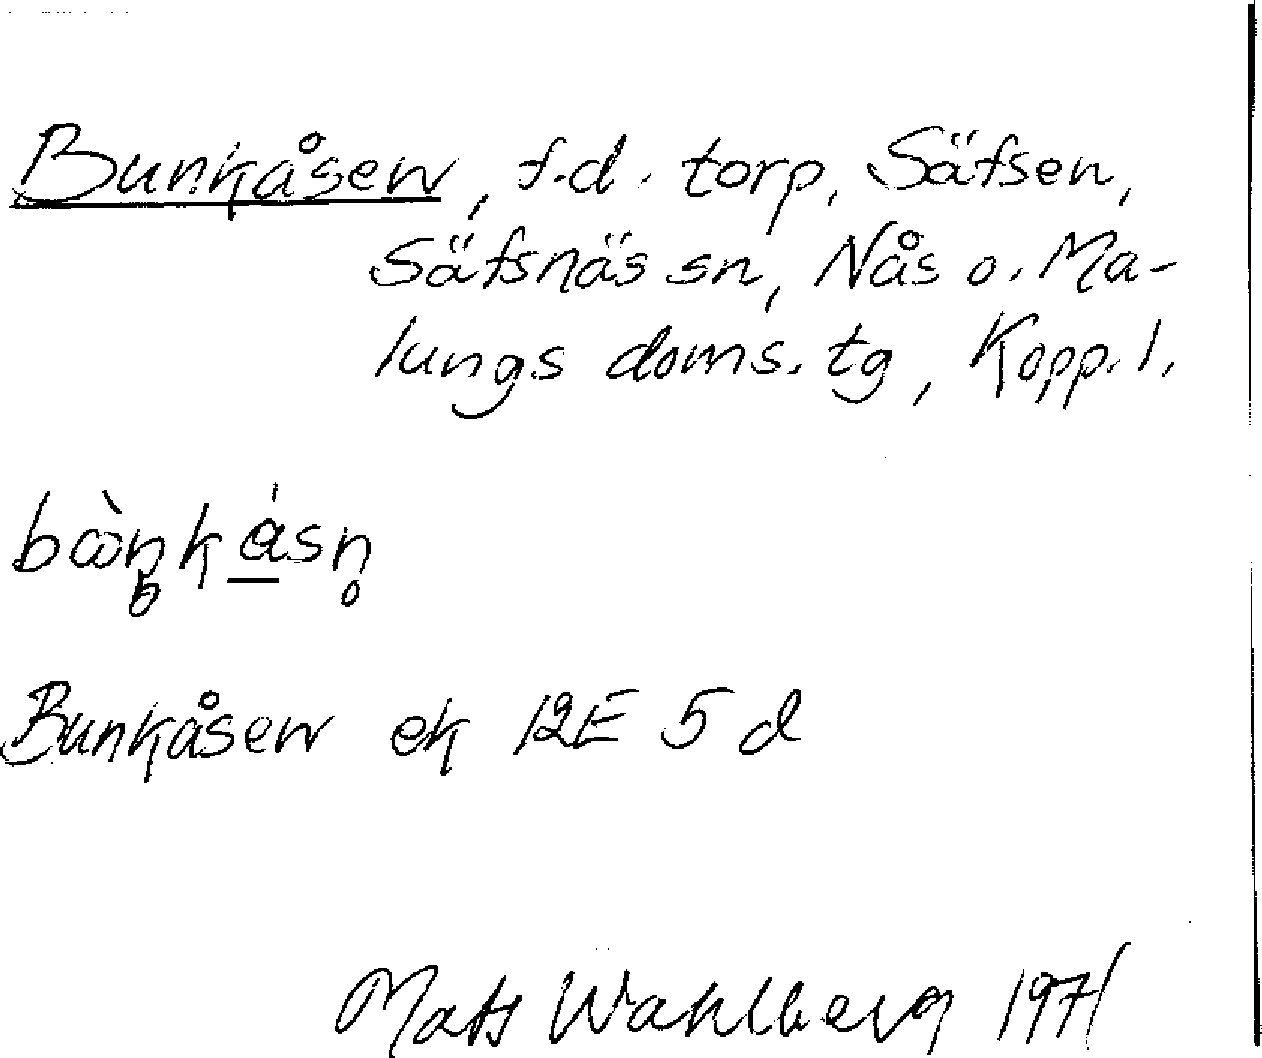 Bunkåsen, f.d. torp, Säfsen,
Säfsnäs sn, Nås o. Ma-
lungs doms. tg, Kopp. l.
Bunkåsen ek 12E 5 d
Mats Wahlberg 1971